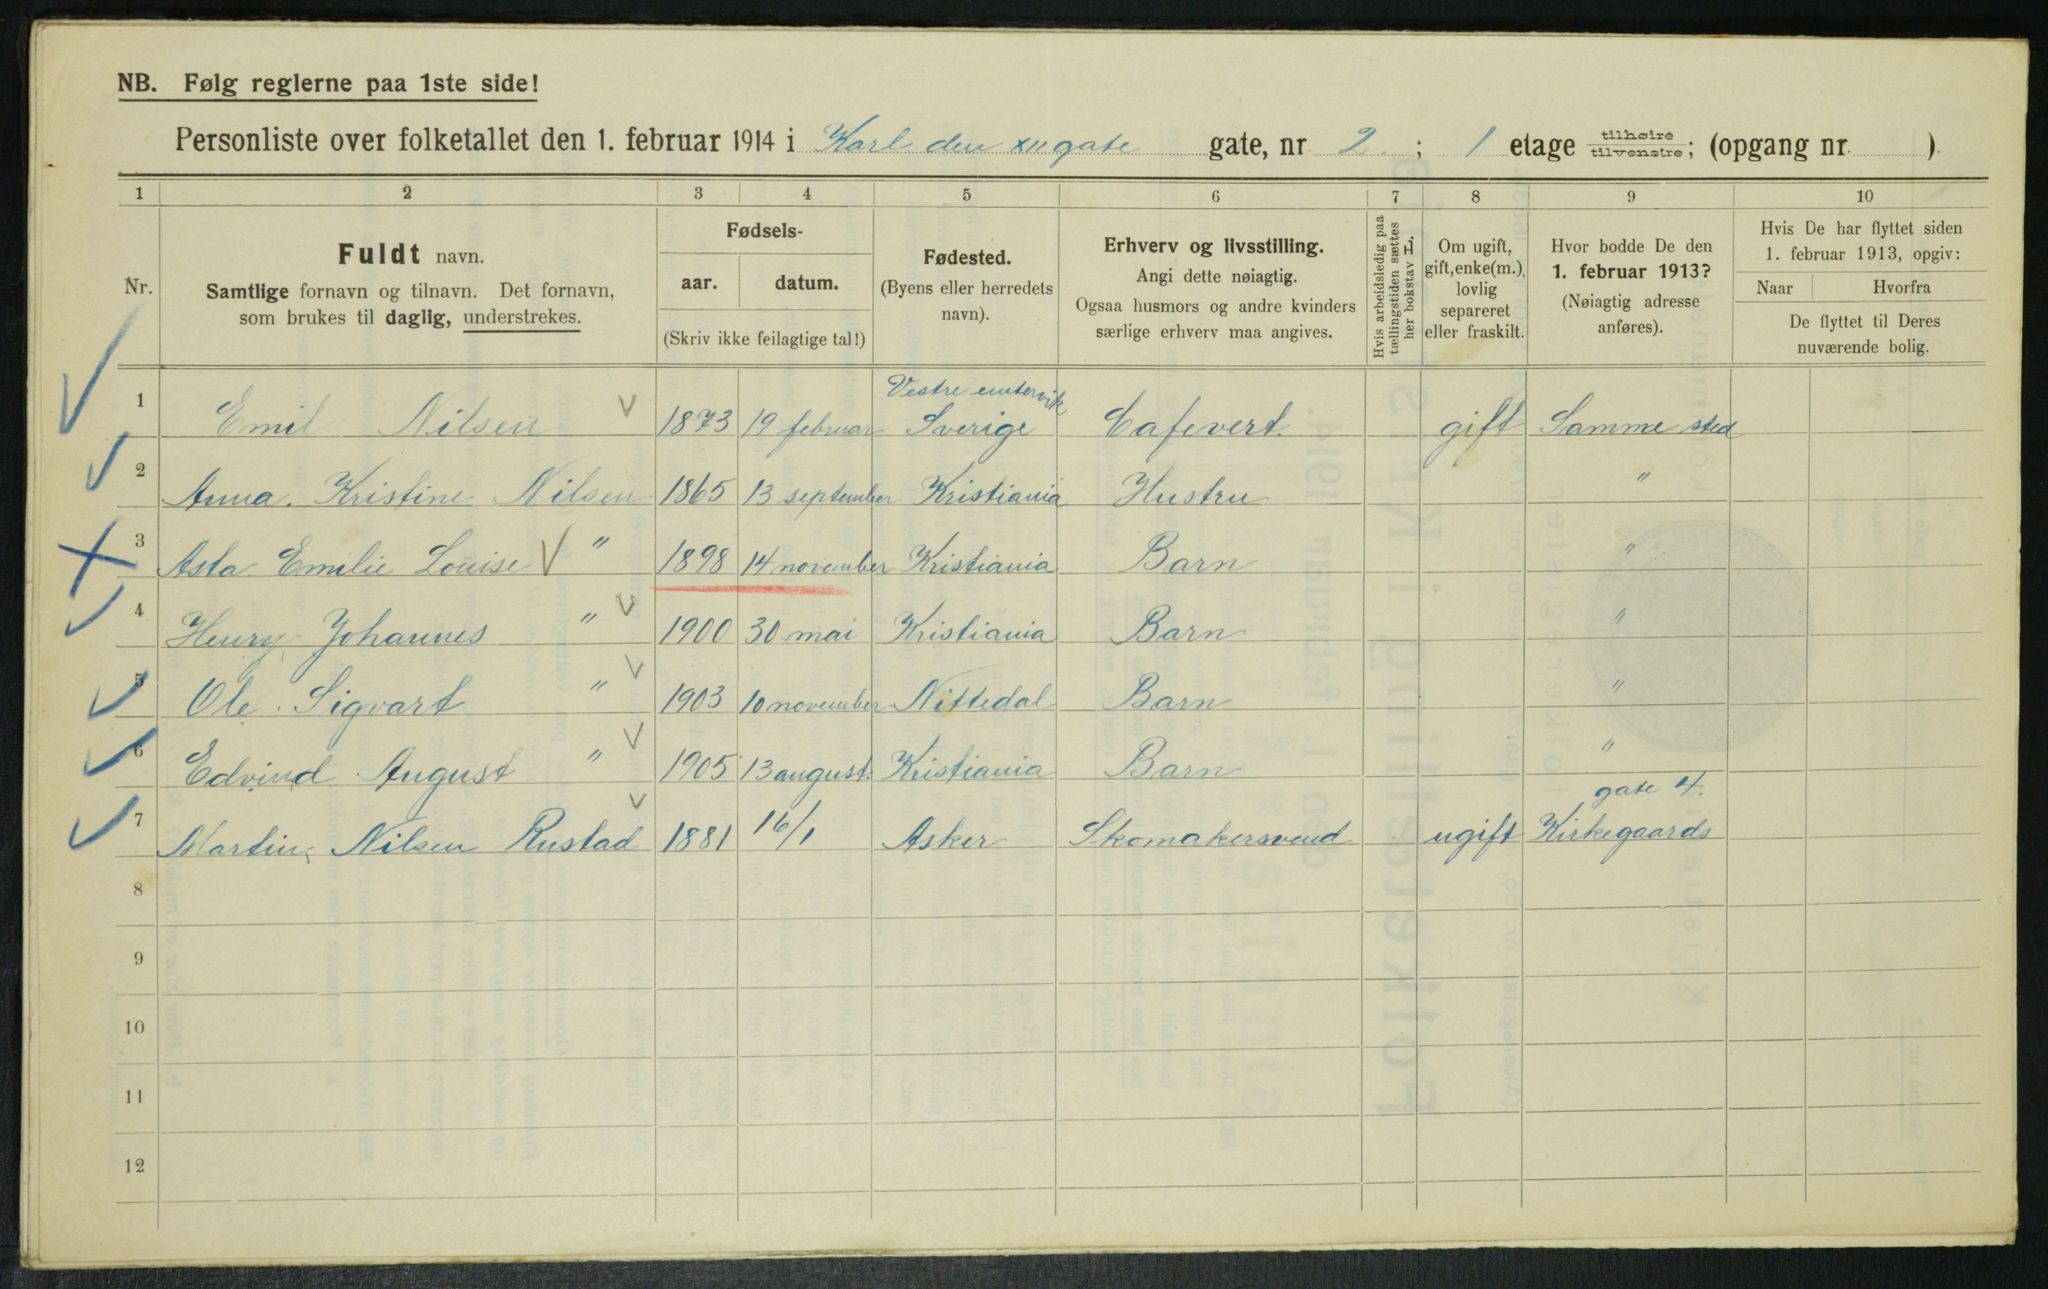 NB. Følg reglerne paa 1ste side!
Personliste over folketallet den 1. februar 1914 i Karl den XII gate gate, nr 2 ; 1 etage tilhøire tilvenstre; (opgang nr. ).
1 2 3 4 5 6 7 8 9 10
Nr.
Fuldt navn.
Samtlige fornavn og tilnavn. Det fornavn,
som brukes til daglig, understrekes.
Fødsels-
aar. datum.
(Skriv ikke feilagtige tal!)
Fødested.
(Byens eller herredets
navn).
Erhverv og livsstilling.
Angi dette nøiagtig.
Ogsaa husmors og andre kvinders
særlige erhverv maa angives.
Hvis arbeidsledig paa
tællingstiden sættes
her bokstav L
Om ugift,
gift, enke(m.),
lovlig
separeret
eller fraskilt.
Hvor bodde De den
1. februar 1913?
(Nøiagtig adresse
anføres).
Hvis De har flyttet siden
1. februar 1913, opgiv:
Naar Hvorfra
De flyttet til Deres
nuværende bolig.
Vestre emtervik
1 Emil Nilsen 1873 19 februar Sverige Cafevert. gift Samme sted
2 Anna. Kristine Nilsen 1865 13 september Kristiania Hustru "
3 Asta Emilie Louise " 1898 14 november Kristiania Barn "
4 Henry Johannes " 1900 30 mai Kristiania Barn "
5 Ole Sigvart " 1903 10 november Nittedal Barn "
6 Edvind August " 1905 13 august. Kristiania Barn "
gate 4.
7 Martin Nilsen Rustad 1881 16/1 Asker Skomakersvend ugift Kirkegaards
8
9
10
11
12